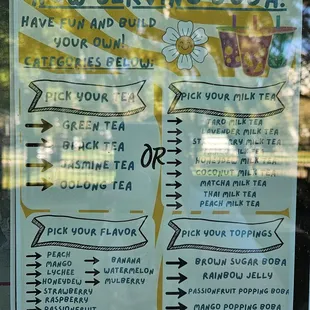 NOW SERVING BOBA!
HAVE FUN AND BUILD
YOUR OWN!
CATEGORIES BELOW:
PICK YOUR TEA
GREEN TEA
BLACK TEA
JASMINE TEA
OOLONG TEA
OR
PICK YOUR MILK TEA
TARO MILK TEA
LAVENDER MILK TEA
STRAWBERRY MILK TEA
HONEYDEW MILK TEA
COCONUT MILK TEA
MATCHA MILK TEA
THAI MILK TEA
PEACH MILK TEA
PICK YOUR FLAVOR
PEACH
MANGO
LYCHEE
HONEYDEW
STRAWBERRY
RASPBERRY
PASSIONFRUIT
BANANA
WATERMELON
MULBERRY
PICK YOUR TOPPINGS
BROWN SUGAR BOBA
RAINBOW JELLY
PASSIONFRUIT POPPING BOBA
MANGO POPPING BOBA